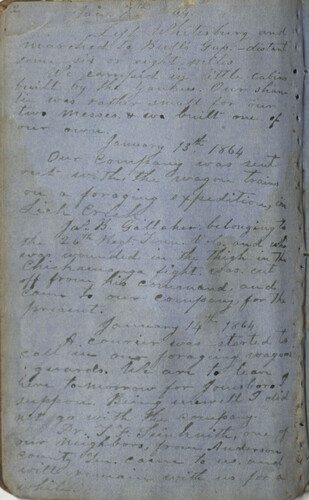 Left and
marched to Bulls Gap - distant
some six or eight miles
We camped in little cabins
built by the Yankees. Our shan-
tie was rather small for our
two messes, & we built one of
our own.
January 13th 1864
Our Company was sent
out with the wagon train
on a foraging expedition, on
Lick Creek
Jas B. Gallaher, belonging to
the 26th Regt Tenn. Vols. and who
was wounded in the thigh in the
Chickamauga fight, was cut
off from his command, and
came to our company for the
present.
January 14th 1864
A courier was started to
call in our foraging wagon
guards. We are to leave
here tomorrow for I
suppose. Being unwell I did
not go with the company.
Dr. one of
our neighbors, from Anderson
county, Ten. came to us, and
will remain with us for a
while